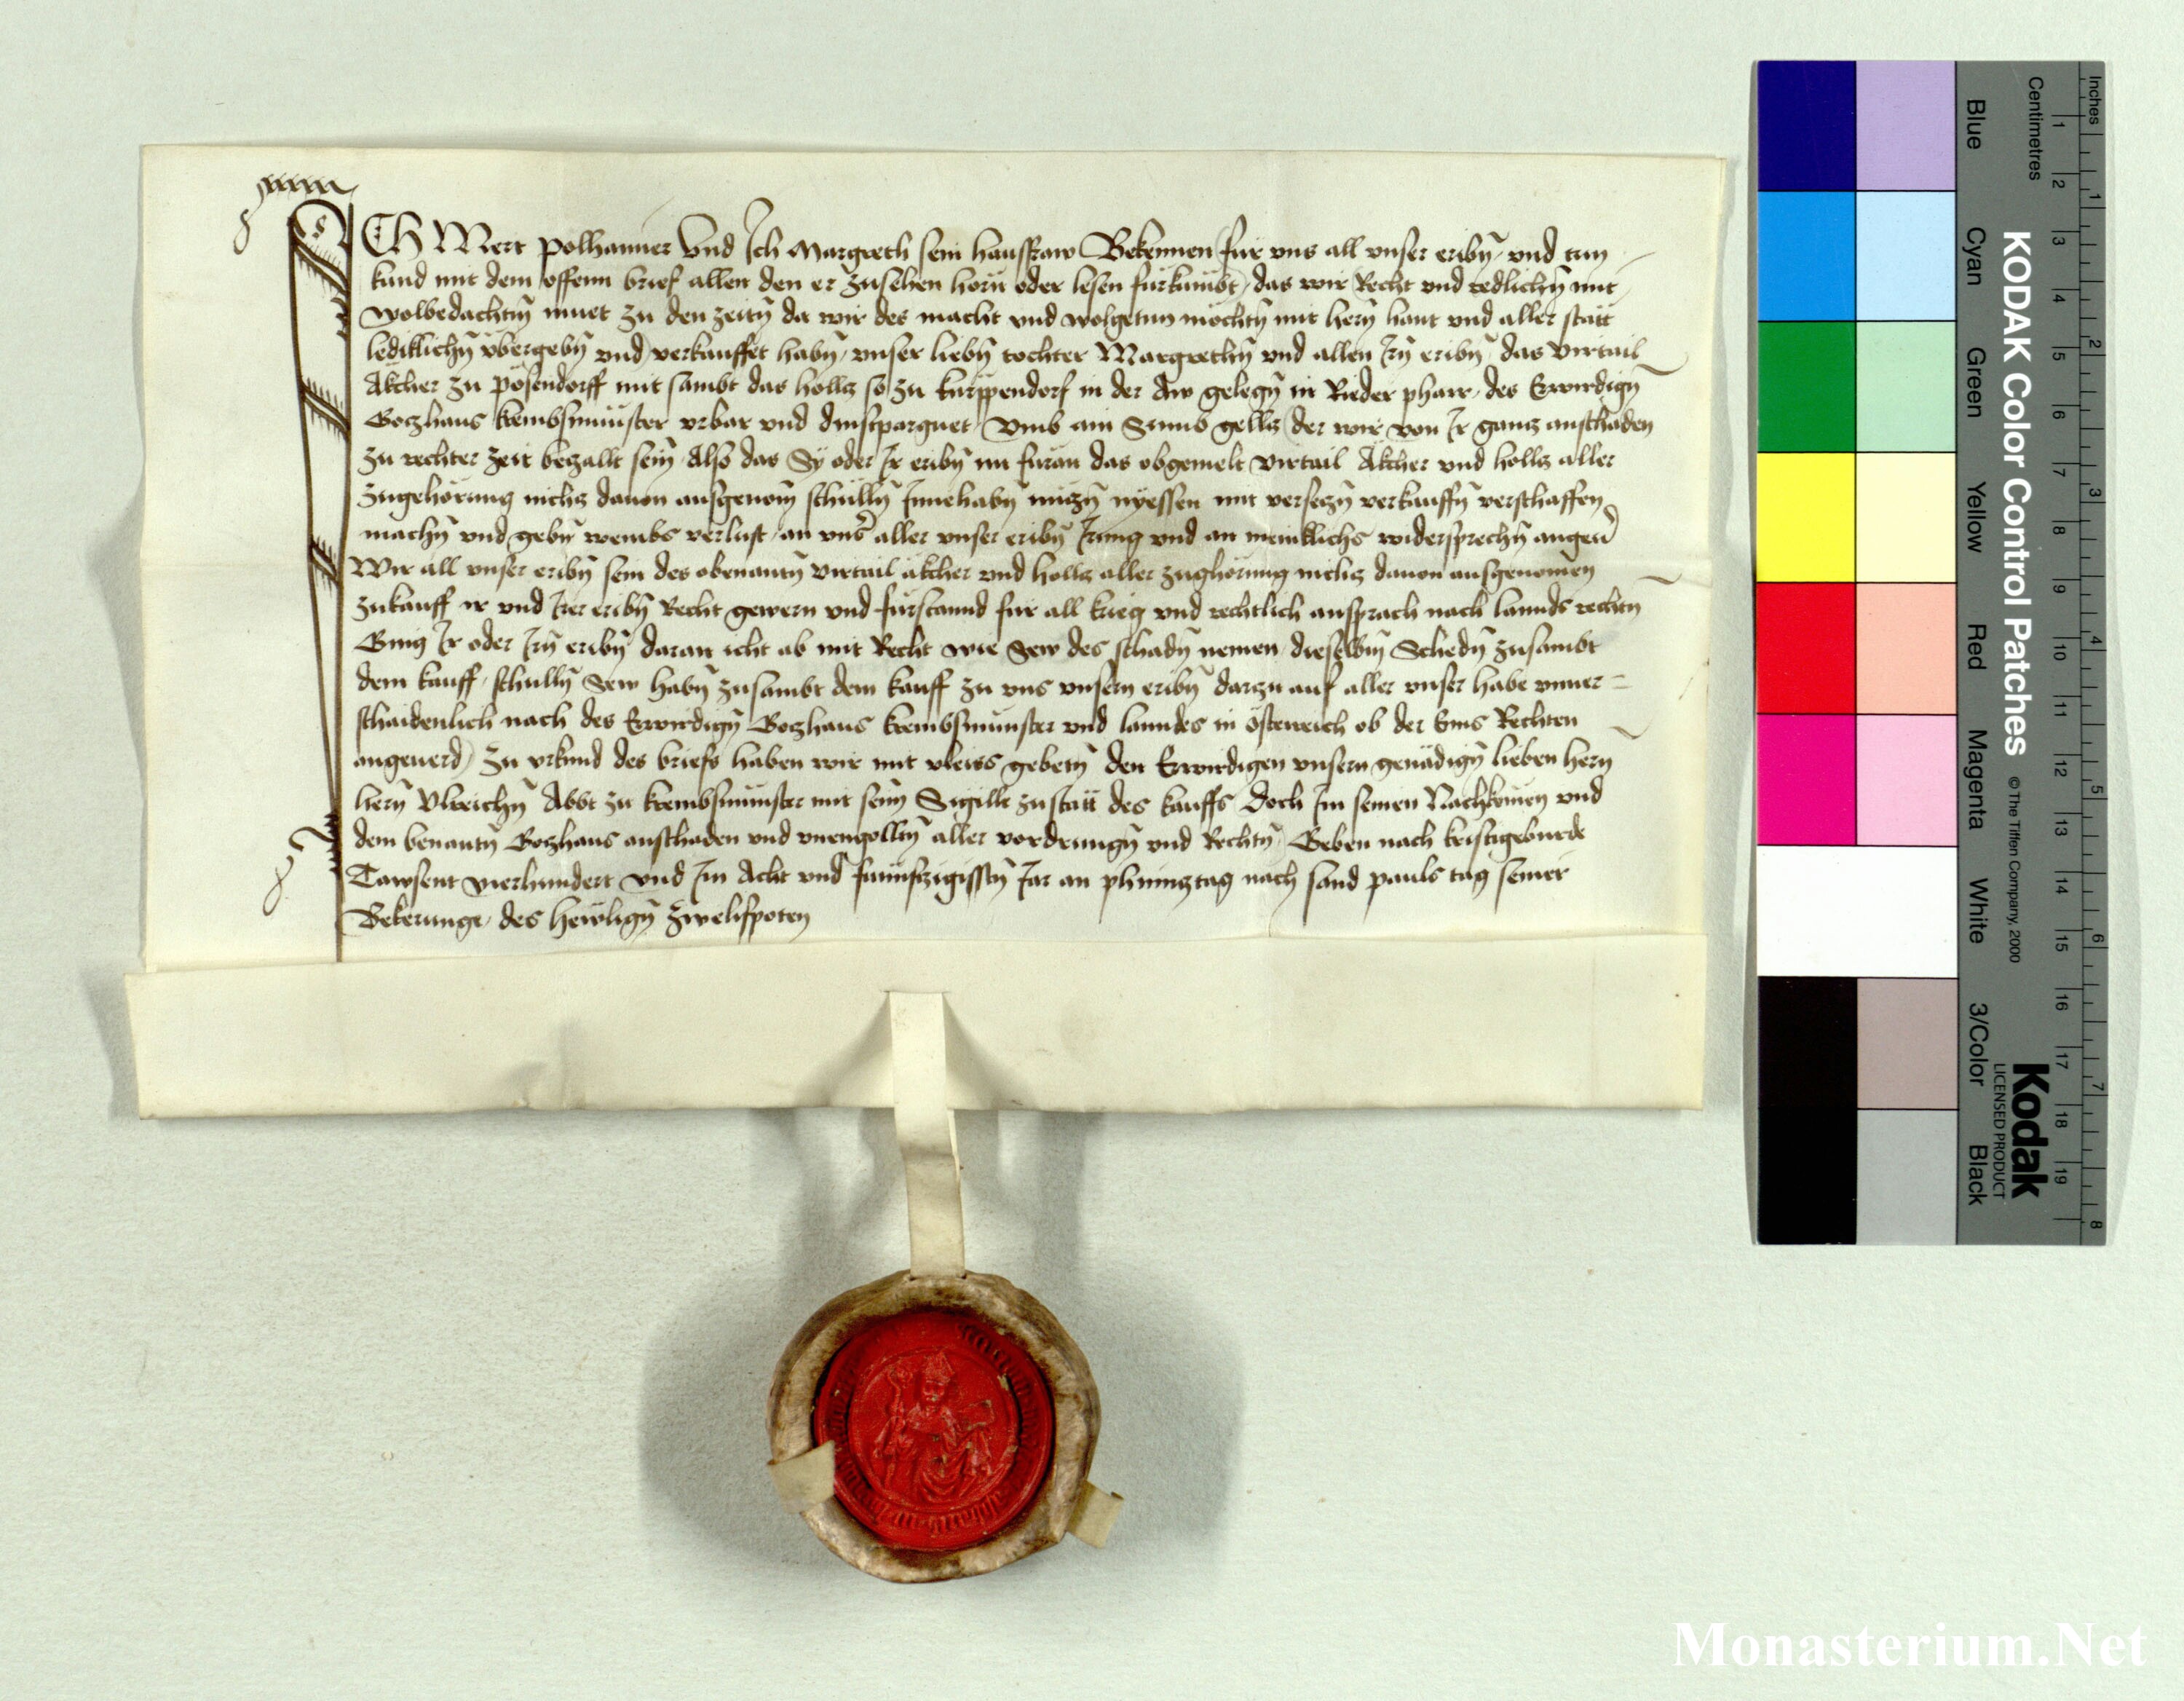 ICH Mert Polhanner Und Ich Margreth sein hausfraw Bekennen fur vns all vnser eribn̄ vnd tun
kund mit dem offenn brief allen den er zusehen hörn oder lesen fürkumbt das wir Recht vnd redlichn̄ mit
wolbedachtm̄ muet zu den zeitn̄ da wir des macht vnd wolgetun mochtn̄ mit hern̄ hant vnd aller statt
lediklichn̄ vbergebn̄ vnd verkauffet habn̄ vnser liebn̄ tochter Margrethn̄ vnd allen Irn̄ eribn̄ das virtail
Akcher zu Pösendorff mit sambt das hollz so zu kurppendorf in der Aw gelegn̄ in Rieder pharr des Erwirdign̄
Goczhaus krembsmünster vrbar vnd dinstparguet Vmb ain Sumb gellz der wir von Ir gancz anschaden
zu rechter zeit beczallt sein̄ Also das Sy oder Ir eribn̄ nu füran das obgemelt virtail Akcher vnd hollz aller
zugehörung nichz dauon ausgenom̄ schülln̄ Innehabn̄ nüczn̄ nyessen mit verseczn̄ verkauffn̄ verschaffen
machn̄ vnd gebn̄ wembs verlust an vns aller vnser eribn̄ Irrung vnd an meniklichs widersprechn̄ angeu͞d
Wir all vnser eribn̄ sein des obenantn̄ virtail äkcher vnd hollz aller zughörung nichz dauon ausgenomen
zukauff ir vnd Irer eribn̄ Recht gewern vnd fürstannd für all krieg vnd rechtlich ansprach nach lannds rechtn
Ging Ir oder Irn̄ eribn̄ daran icht ab mit Recht wie Sew des schadn̄ nemen dieselbm̄ Schedn̄ zusambt
dem kauff schulln̄ Sew habn̄ zusambt dem kauff zu vns vnsern eribn̄ darzu auf aller vnser habe vnuer=
schaidenlich nach des Erwirdign̄ Goczhaus krembsmünster vnd lanndes in österreich ob der Enns Rechten
angeuerd Zu vrkund des briefs haben wir mit vleiss gebetn̄ den Erwirdigen vnsern genädign̄ lieben hern
hern̄ Vlreichn̄ Abbt zu krembsmünster mit seim̄ Sigillt zustatt des kauffs Doch Im seinen Nachkomen vnd
dem benantn̄ Goczhaus anschaden vnd vnengolltn̄ aller vordrungn̄ vnd Rechtn̄ Geben nach kristigeburde
Tawsent vierhundert vnd Im Acht vnd fumfzigisstn̄ Jar an phincztag nach sand pauls tag seiner
Bekerunge des heilign̄ zwelifpoten
KODAK Color Control Patches © The Tiffen Company, 2000
Kodak
LICENSED PRODUCT
Blue Cyan Green Yellow Red Magenta White 3/Color Black
Centimetres 1 2 3 4 5 6 7 8 9 10 11 12 13 14 15 16 17 18 19
Inches 1 2 3 4 5 6 7 8
Monasterium.Net